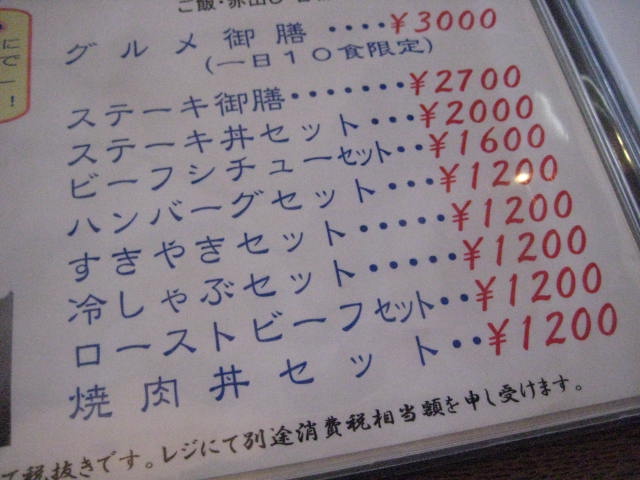 ご飯・赤出し
グルメ御膳・・・・¥3000
(一日10食限定)
ステーキ御膳・・・・・・・¥2700
ステーキ丼セット・・・¥2000
ビーフシチューセット・・¥1600
ハンバーグセット・・・¥1200
すきやきセット・・・・・¥1200
冷しゃぶセット・・・・・¥1200
ローストビーフセット・・¥1200
焼肉丼セット・・¥1200
て税抜きです。レジにて別途消費税相当額を申し受けます。
にで
！